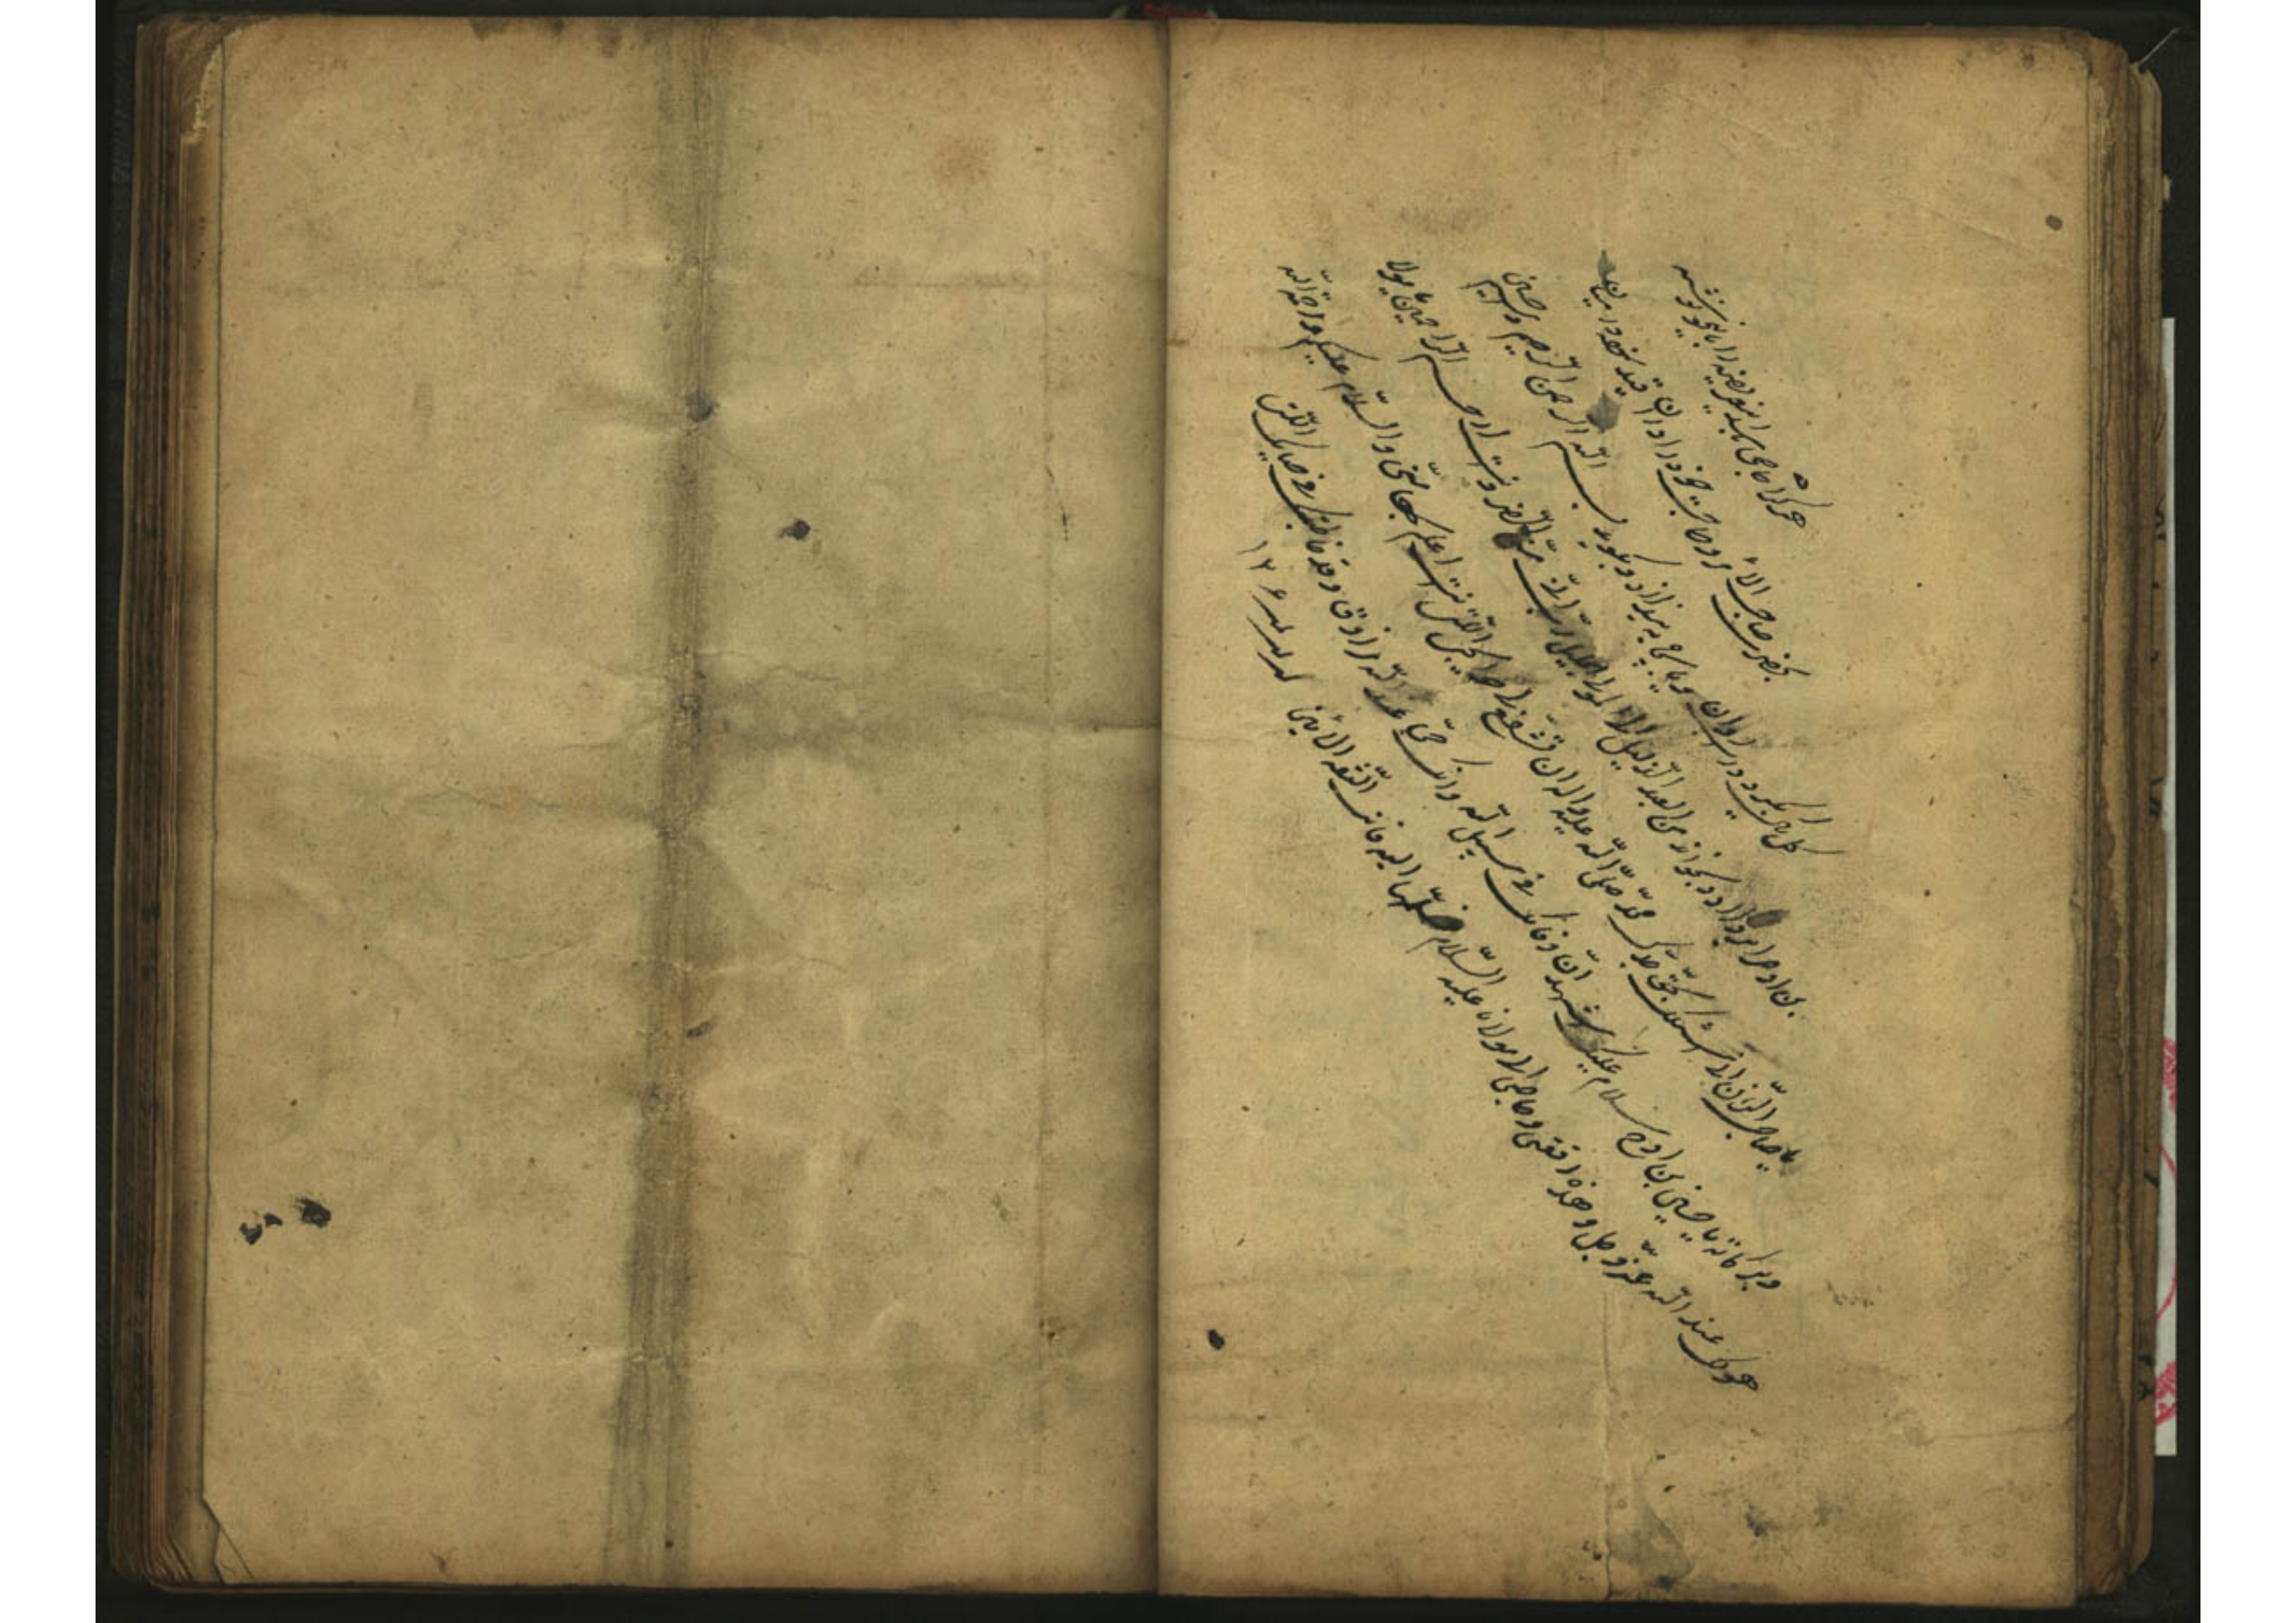 هرکرا حاجی باشد این عریضه را باید نوشته
بحضرت صاحب الامر و حاجت خود را در ان قید نموده در میان
کل پاک بگیرد و در اب روان و یا چاه به اندازد و بگوید بسم الله الرحمن الرحیم و حسین
بن روح را بخواند من العبد الذلیل الی المولی الجلیل رب انی مسنی الضر و انت ارحم الراحمین یا مولا
یا صاحب الزمان اسئلک بحق جدک محمد صلی الله علیه واله ان تشفع لی حوائجی التی انت اعلم بها منی والسلام علیکم ورحمة الله
وبرکاته یا حسین بن روح سلام علیک اشهد ان وفاتک فی سبیل الله وانک حی عند الله مرزوق وقد خاطبتک فی حیاتک التی
لک عند الله عز وجل وهذه رقعتی وحاجتی الی مولانا علیه السلام فسلمها الیه فانت الثقة الامین